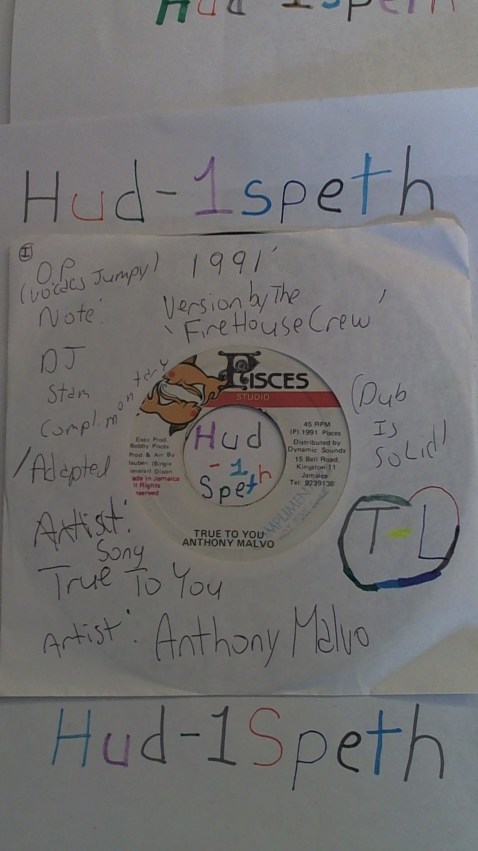 Hud-1speth
Hud-1speth
I
O.P 1991'
(vocals Jumpy)
Note: Version by The
'Fire House Crew'
DJ
Stam
Complimontary
/Adapted
(Dub
Is
SoLid)
PISCES
STUDIO
Exec Prod.
Bobby
Prod & Arr By
ade in Jamaica
ll Rights
reserved
45 RPM
(P) 1991 Pisces
Distributed by
Dynamic Sounds
15 Bell Road,
Kingston 11
Jamaica
Hud
-1
Speth
TRUE TO YOU
ANTHONY MALVO
T-L
Artist:
Song
True To You
Artist: Anthony Malvo
Hud-1Speth